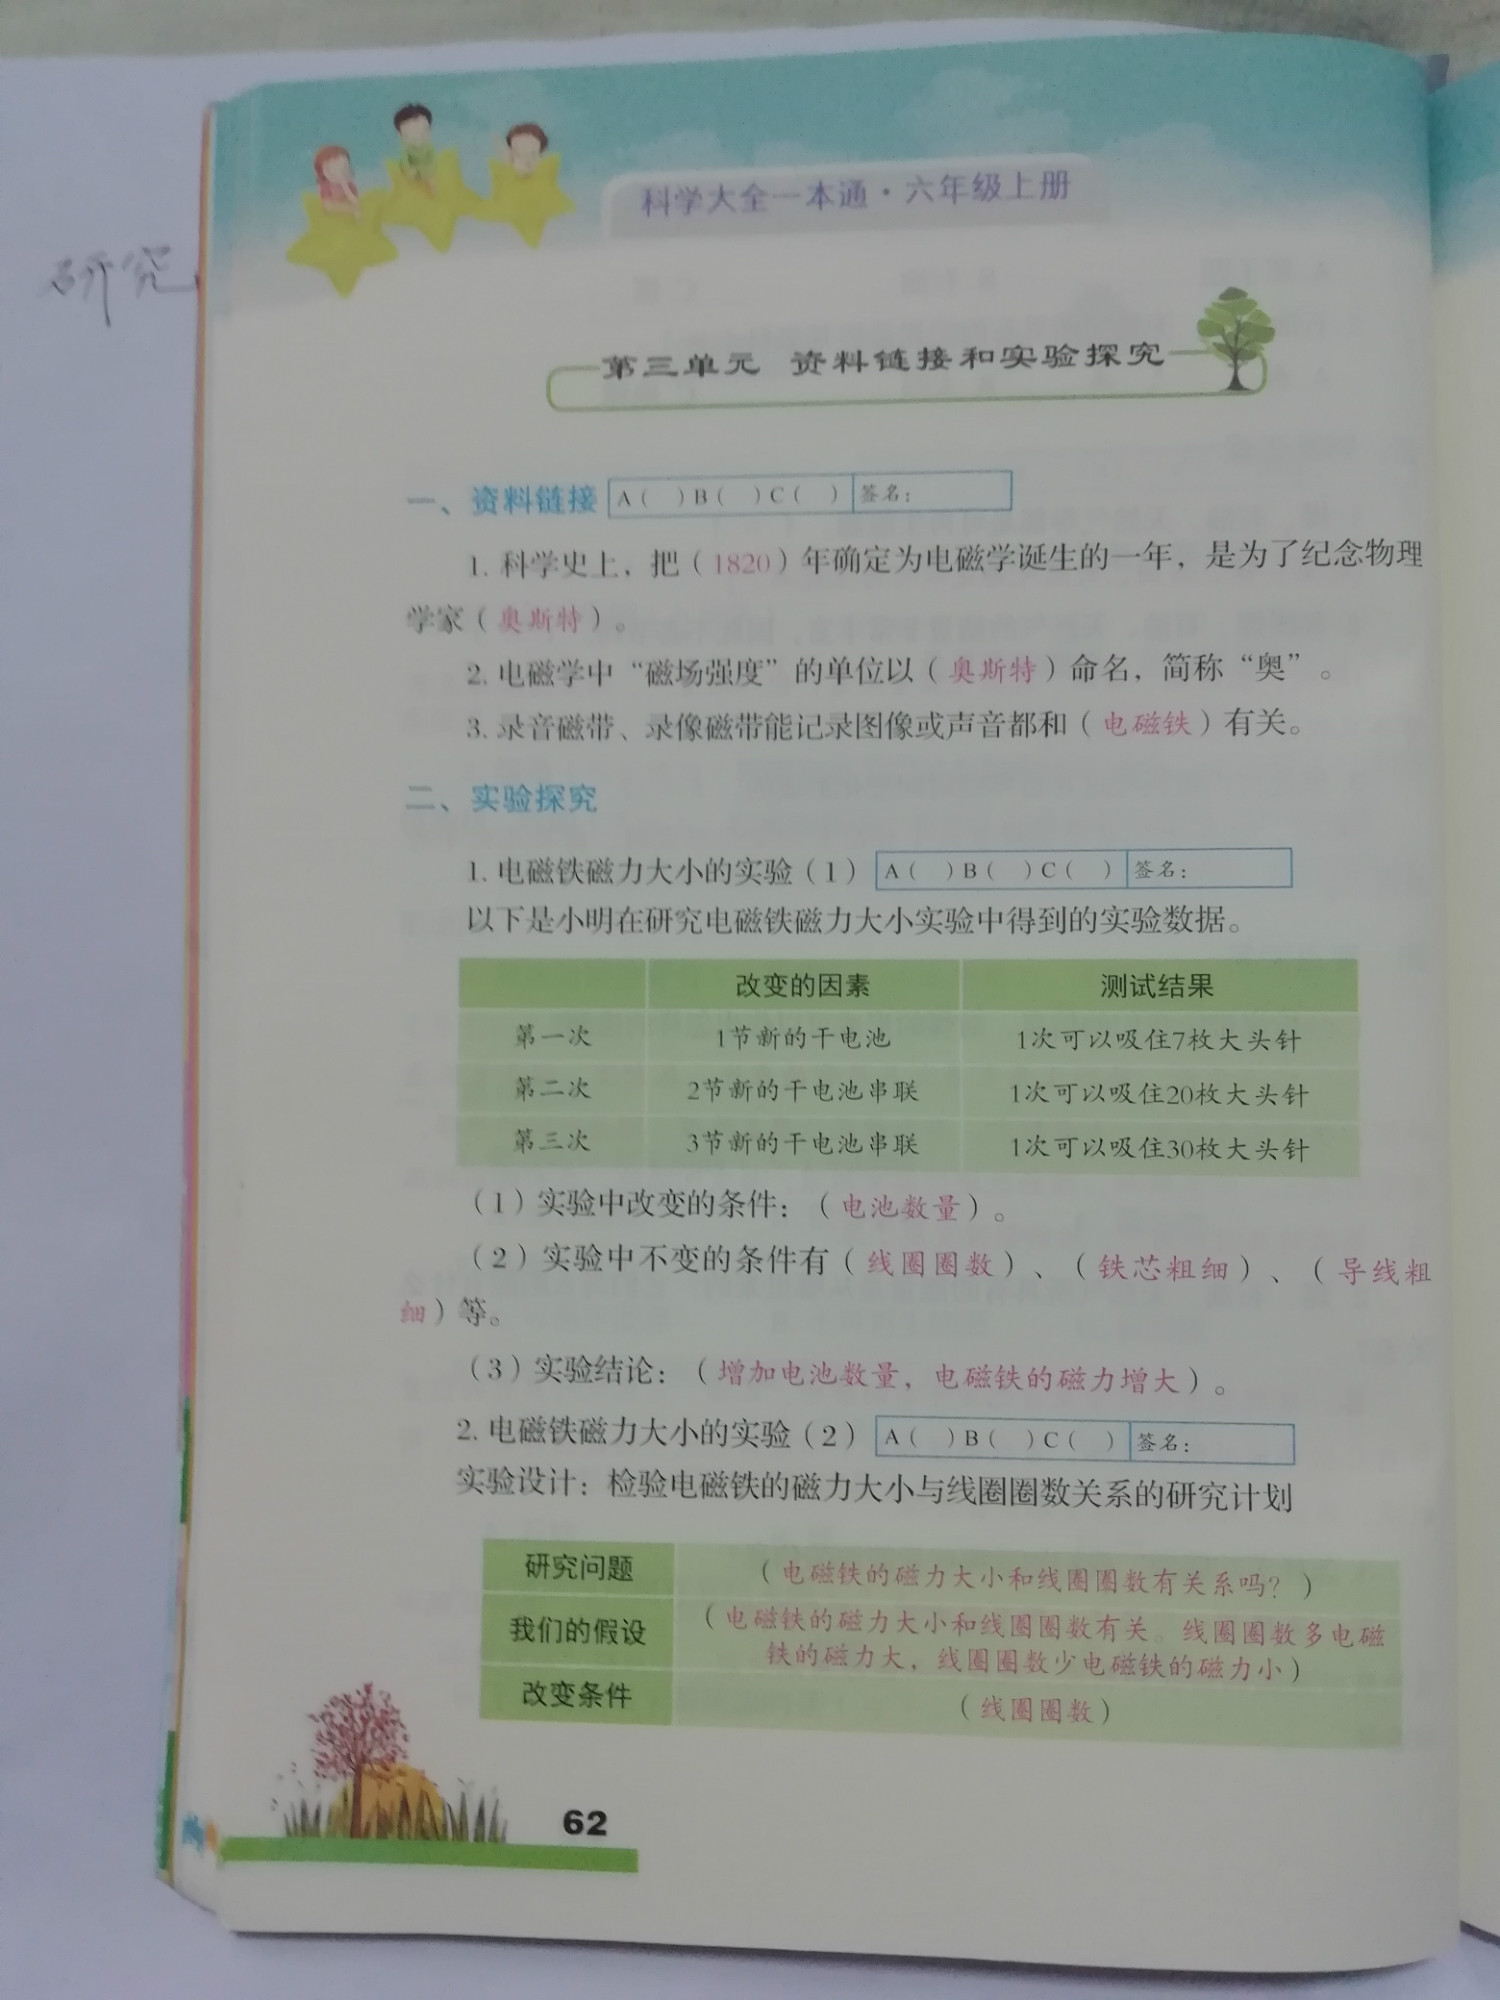 科学大全一本通·六年级上册
研究
第三单元 资料链接和实验探究
一、资料链接 A( )B( )C( ) 签名：
1. 科学史上，把（1820）年确定为电磁学诞生的一年，是为了纪念物理
学家（奥斯特）。
2. 电磁学中“磁场强度”的单位以（奥斯特）命名，简称“奥”。
3. 录音磁带、录像磁带能记录图像或声音都和（电磁铁）有关。
二、实验探究
1. 电磁铁磁力大小的实验（1） A( )B( )C( ) 签名：
以下是小明在研究电磁铁磁力大小实验中得到的实验数据。
改变的因素 测试结果
第一次 1节新的干电池 1次可以吸住7枚大头针
第二次 2节新的干电池串联 1次可以吸住20枚大头针
第三次 3节新的干电池串联 1次可以吸住30枚大头针
（1）实验中改变的条件：（电池数量）。
（2）实验中不变的条件有（线圈圈数）、（铁芯粗细）、（导线粗
细）等。
（3）实验结论：（增加电池数量，电磁铁的磁力增大）。
2. 电磁铁磁力大小的实验（2） A( )B( )C( ) 签名：
实验设计：检验电磁铁的磁力大小与线圈圈数关系的研究计划
研究问题 （电磁铁的磁力大小和线圈圈数有关系吗？）
我们的假设 （电磁铁的磁力大小和线圈圈数有关。线圈圈数多电磁
铁的磁力大，线圈圈数少电磁铁的磁力小）
改变条件 （线圈圈数）
62